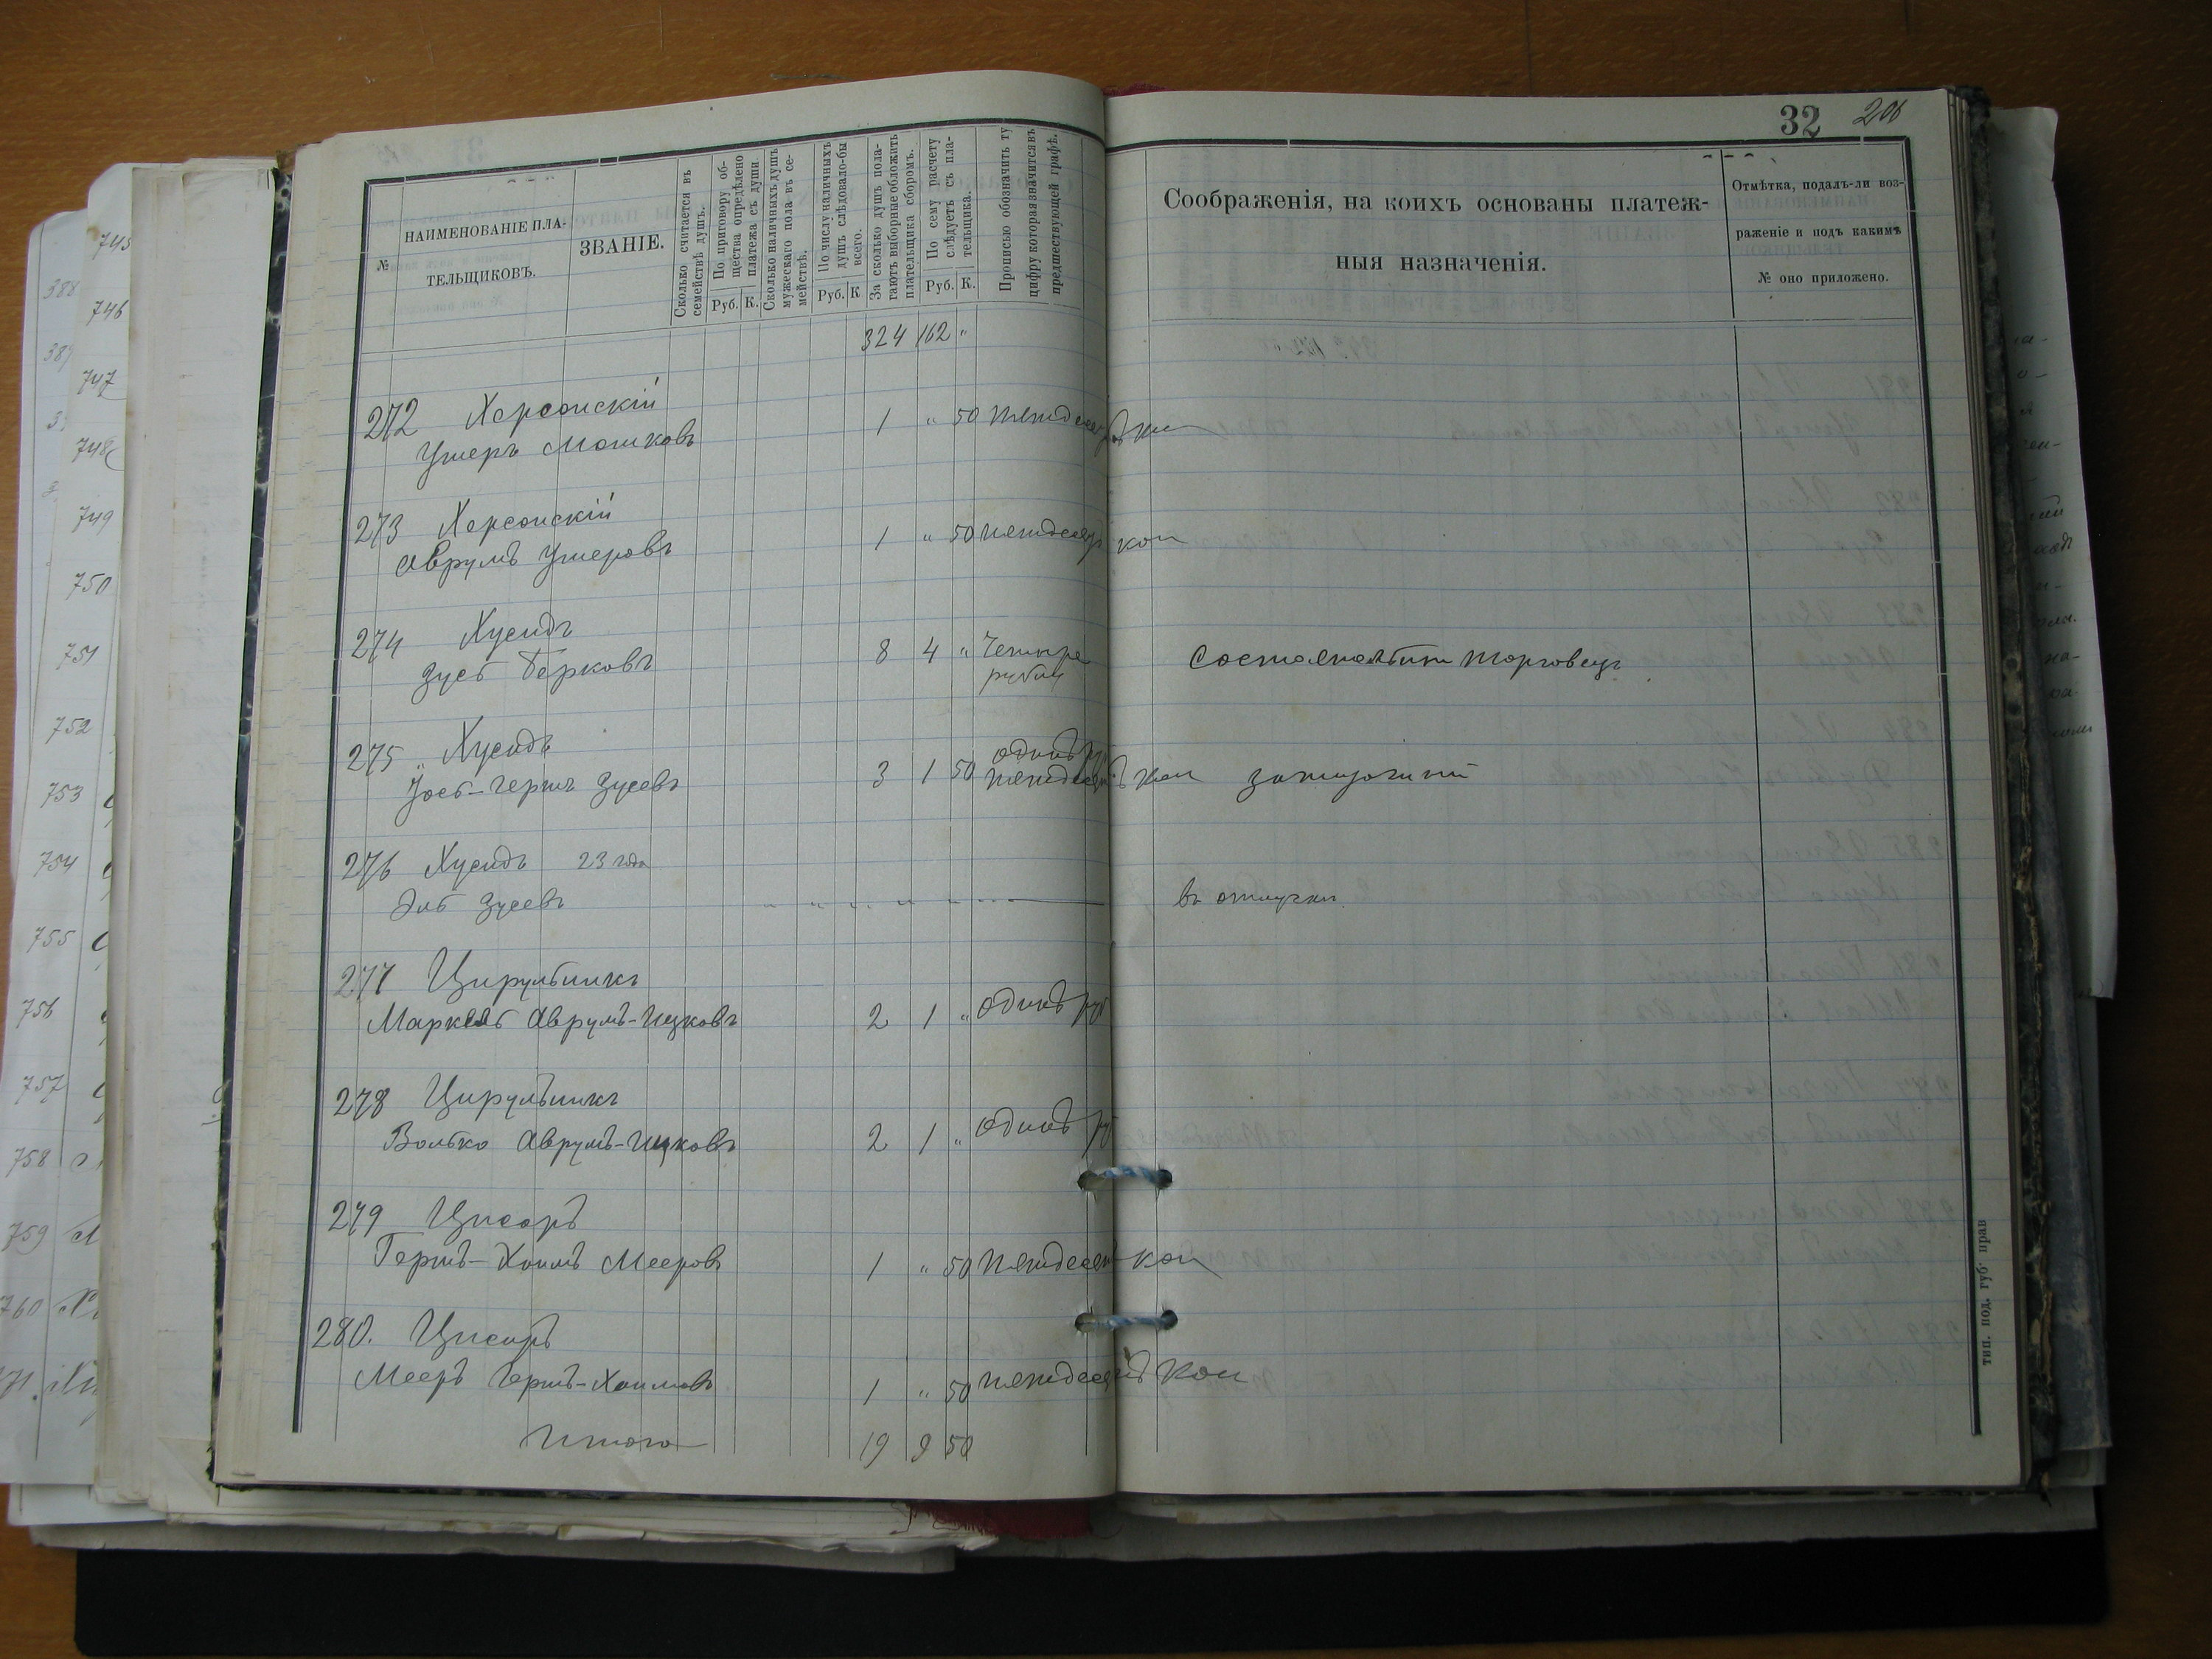 32 206
№
НАИМЕНОВАНІЕ ПЛА-
ТЕЛЬЩИКОВЪ.
ЗВАНІЕ.
Сколько считается въ
семействѣ душъ.
По приговору об-
щества опредѣлено
платежа съ души
Руб. К.
Сколько наличныхъ душъ
мужескаго пола въ се-
мействѣ.
По числу наличныхъ
душъ слѣдовало-бы
всего.
Руб. К
За сколько душъ пола-
гаютъ выборные обложить
плательщика сборомъ.
По сему расчету
слѣдуетъ съ пла-
тельщика.
Руб. К.
Прописью обозначить ту
цифру которая значится въ
предшествующей графѣ.
Соображенія, на коихъ основаны платеж-
ныя назначенія.
Отмѣтка, подалъ-ли воз-
раженіе и подъ какимъ
№ оно приложено.
324 162 "
272 Херсонскій
Ушеръ Мошковъ 1 " 50 пятдесятъ коп
273 Херсонскій
Аврумъ Ушеровъ 1 " 50 пятдесят коп
274 Хусидъ
Зусь Берковъ 8 4 " Четыре
рубли
Состоятельный торговецъ
275 " Хусидъ
Iось-Гершъ Зусевъ 3 1 50 одинъ ру
пятдесятъ коп зажиточный
276 Хусидъ 23 года
Эль Зусевъ въ отлучки
277 Цирульникъ
Маркель Аврумъ-Ицковъ 2 1 " одинъ руб
278 Цирульникъ
Волько Аврумъ-Ицковъ 2 1 " одинъ ру
279 Цисаръ
Гершъ-Хаимъ Мееровъ 1 " 50 пятдесят коп
280. Цисаръ
Мееръ Гершъ-Хаимовъ 1 " 50 пятдесятъ коп
Итого 19 9 50
тип. под. губ. прав
745
388
746
389
747
748
749
750
751
752
753
754
755
756
757
758
759
760